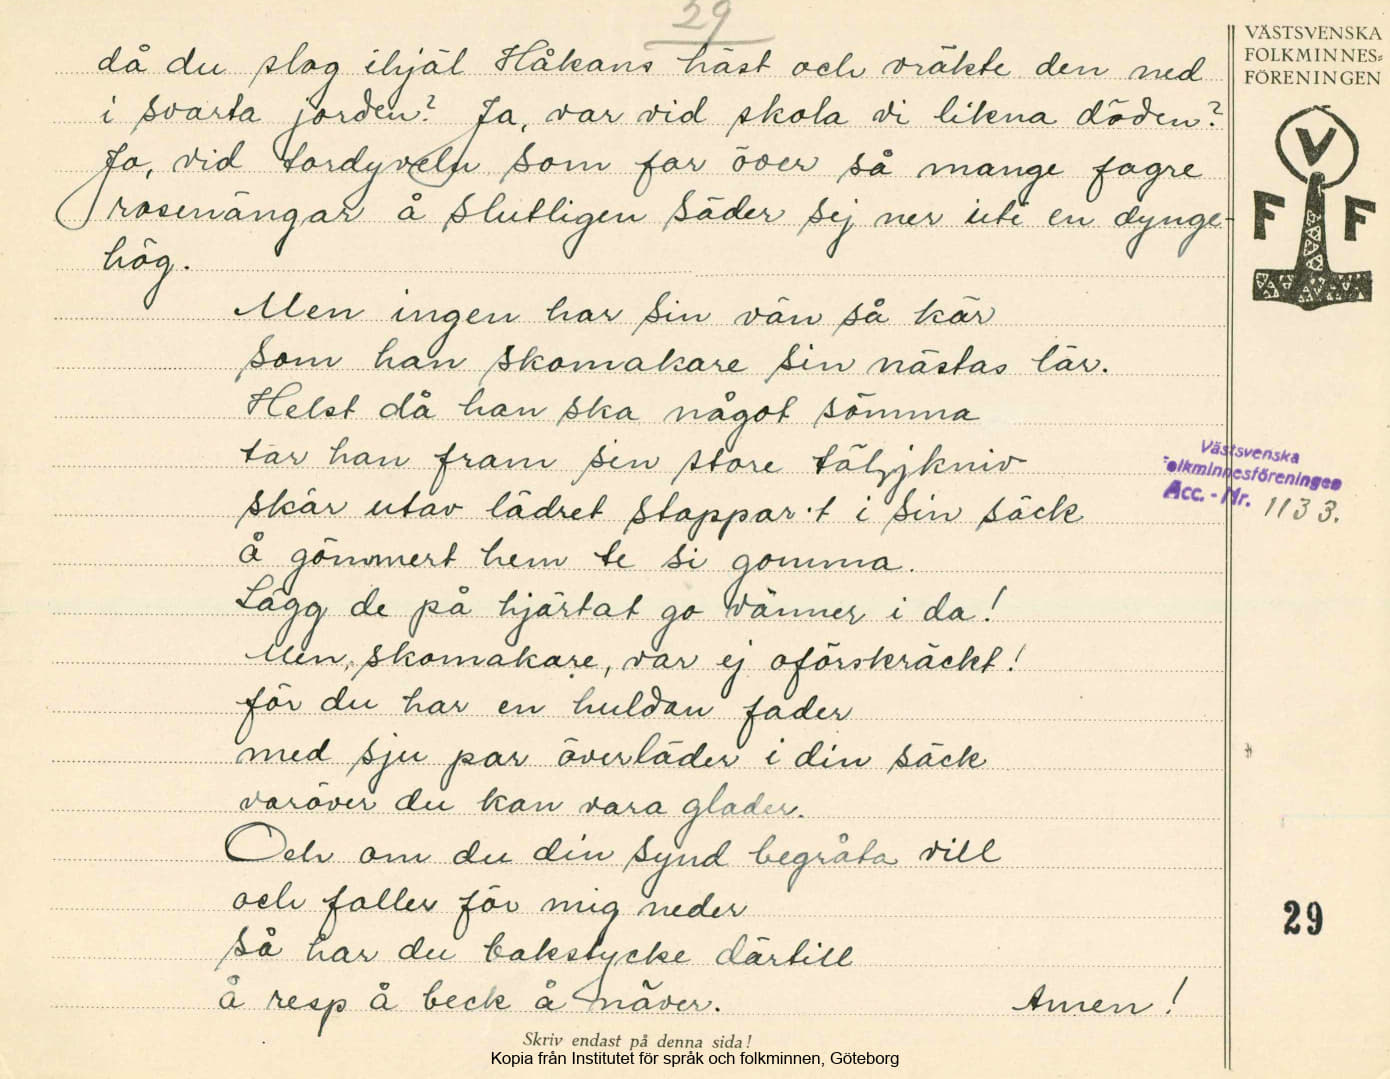 29
då du slog ihjäl Håkans häst och vräkte den ned
i svarta jorden? Ja, var vid skola vi likna döden?
Jo, vid tordyveln som far över så mange fagre
rosenängar å slutligen säder sej ner uti en dynge-
hög.
Men ingen har sin vän så kär
som han skomakare sin nästas lär.
Helst då han ska något sömma
tar han fram sin store täljkniv
skär utav lädret stoppar't i sin säck
å gömmert hem te si gomma.
Lägg de på hjärtat go vänner i da!
Men, skomakare, var ej oförskräckt!
för du har en huldan fader
med sju par överläder i din säck
varöver du kan vara glader.
Och om du din synd begråta vill
och faller för mig neder
så har du bakstycke därtill
å resp å beck å näver. Amen!
Skriv endast på denna sida!
Kopia från Institutet för språk och folkminnen, Göteborg
VÄSTSVENSKA
FOLKMINNES=
FÖRENINGEN
V
F F
Västsvenska
olkminnesföreningen
Acc. - Nr. 1133.
29